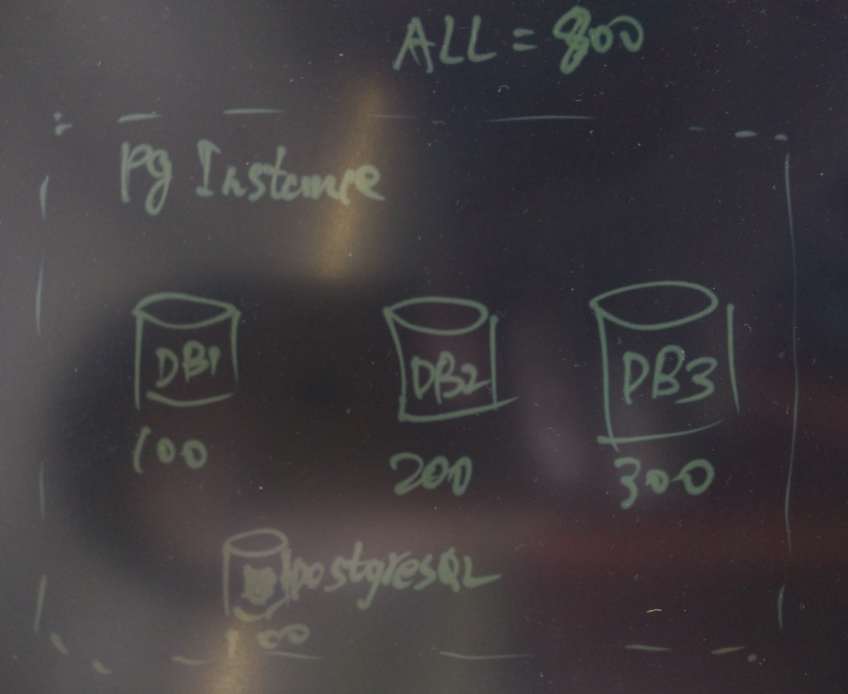 ALL = 800
Pg Instance
DB1
DB2
DB3
100
200
300
postgresQL
100